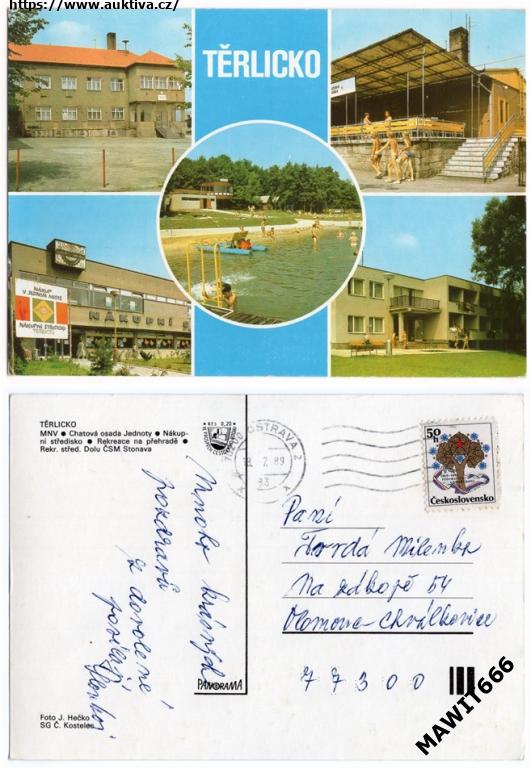 https://www.auktiva.cz/
TĚRLICKO
NÁKUP
V JEDNOM MÍSTĚ
NÁKUPNÍ STŘEDISKO
TĚRLICKO
NÁKUPNÍ S
TĚRLICKO
MNV ● Chatová osada Jednoty ● Nákup-
ní středisko ● Rekreace na přehradě ●
Rekr. střed. Dolu ČSM Stonava
Kčs 0,20
OSTRAVA 2
18. 7. 89
50 h
Československo
Mnoho krásných
pozdravů
z dovolené
posílají
Paní
Tvrdá Milenka
Na zákopě 54
Olomouc-Chválkovice
77300
PANORAMA
Foto J. Hečko
SG Č. Kostelec
MAWIT666